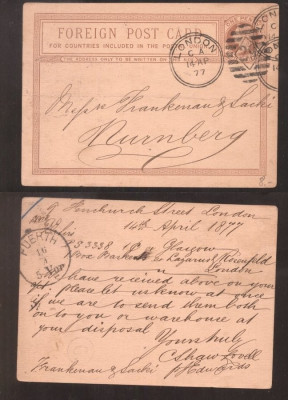 FOREIGN POST CARD
FOR COUNTRIES INCLUDED IN THE POSTAL UNION
THE ADDRESS ONLY TO BE WRITTEN ON THIS SIDE
LONDON
C A
14 AP
77
Messrs Frankenau & Sacki
Nurnberg
9 Fenchurch Street London
14th April 1877
FUERTH
PS 3358 Glasgow
Lazarus Rosenfeld
London
have received above on your
a/c. please let us know at once
if we are to send them both
on to you or warehouse at
your disposal
Yours truly
C Shaw Lovell
Frankenau & Sacki